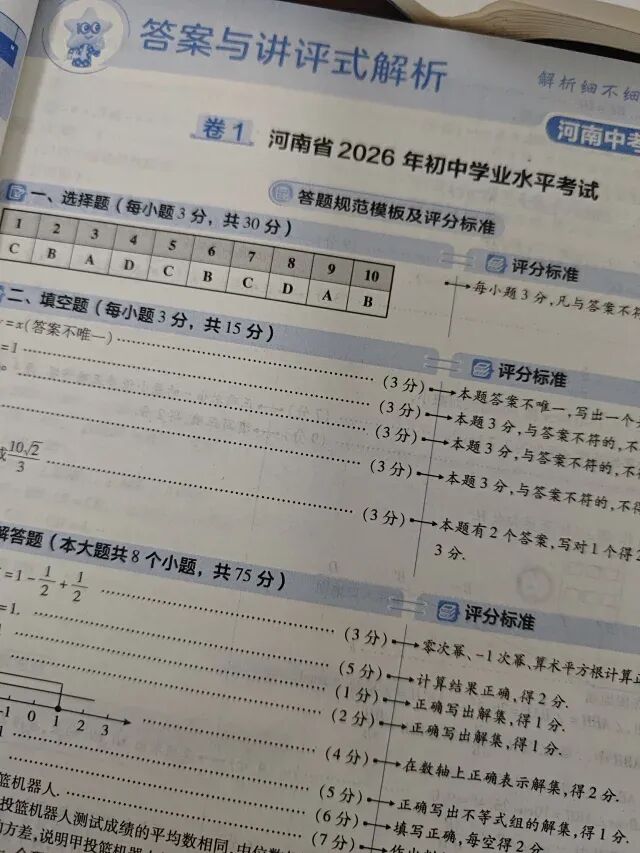 答案与讲评式解析
解析细不细
河南中考
卷1 河南省2026年初中学业水平考试
答题规范模板及评分标准
一、选择题（每小题3分，共30分）
评分标准
1 2 3 4 5 6 7 8 9 10
C B A D C B C D A B
每小题3分，凡与答案不符
二、填空题（每小题3分，共15分）
评分标准
=x(答案不唯一) (3分) 本题答案不唯一，写出一个
=1 (3分) 本题3分，与答案不符的，不
(3分) 本题3分，与答案不符的，不
(3分) 本题3分，与答案不符的，不得
10√2/3 (3分) 本题有2个答案，写对1个得2
3分.
解答题（本大题共8个小题，共75分）
评分标准
=1-1/2+1/2 (3分) 零次幂、-1次幂、算术平方根计算正
=1. (5分) 计算结果正确，得2分.
(1分) 正确写出解集，得1分.
(2分) 正确写出解集，得1分.
-1 0 1 2 3 (4分) 在数轴上正确表示解集，得2分.
(5分) 正确写出不等式组的解集，得1分.
篮机器人. (6分) 填写正确，每空得2分
投篮机器人测试成绩的平均数相同，中位数 (7分)
方差，说明甲投篮机器人